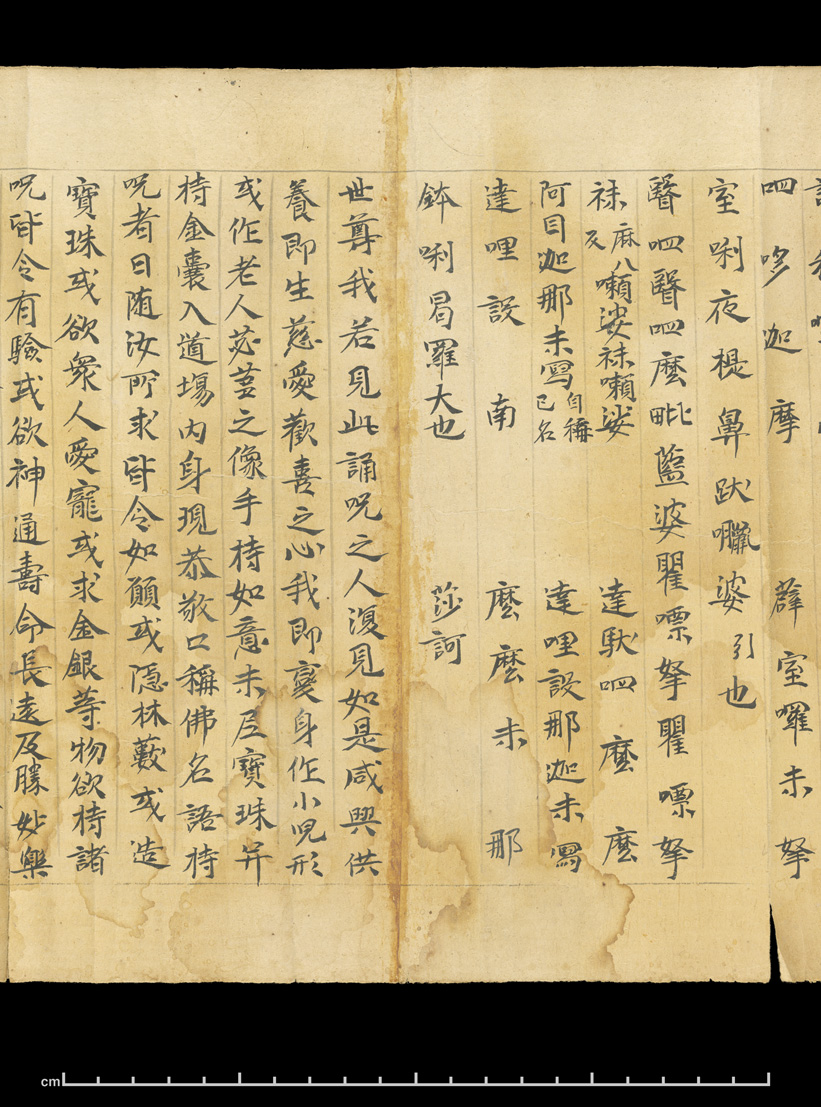 呬哆迦摩薜室囉末拏
室唎夜榥鼻跋臘婆引也
醫呬醫呬麼毗藍婆瞿嘌拏瞿嘌拏
袜麻八及𡃤娑袜𡃤娑達馱呬麼麼
阿目迦那末寫自稱己名達哩設那迦末寫
達哩設南麼麼末那
鉢唎曷羅大也莎訶
世尊我若見此誦呪之人復見如是咸興供
養即生慈愛歡喜之心我即變身作小兒形
或作老人苾蒭之像手持如意末尼寶珠并
持金囊入道場內身現恭敬口稱佛名語持
呪者曰隨汝所求皆令如願或隱林藪或造
寶珠或欲衆人愛寵或求金銀等物欲持諸
呪皆令有驗或欲神通壽命長遠及勝妙樂
cm